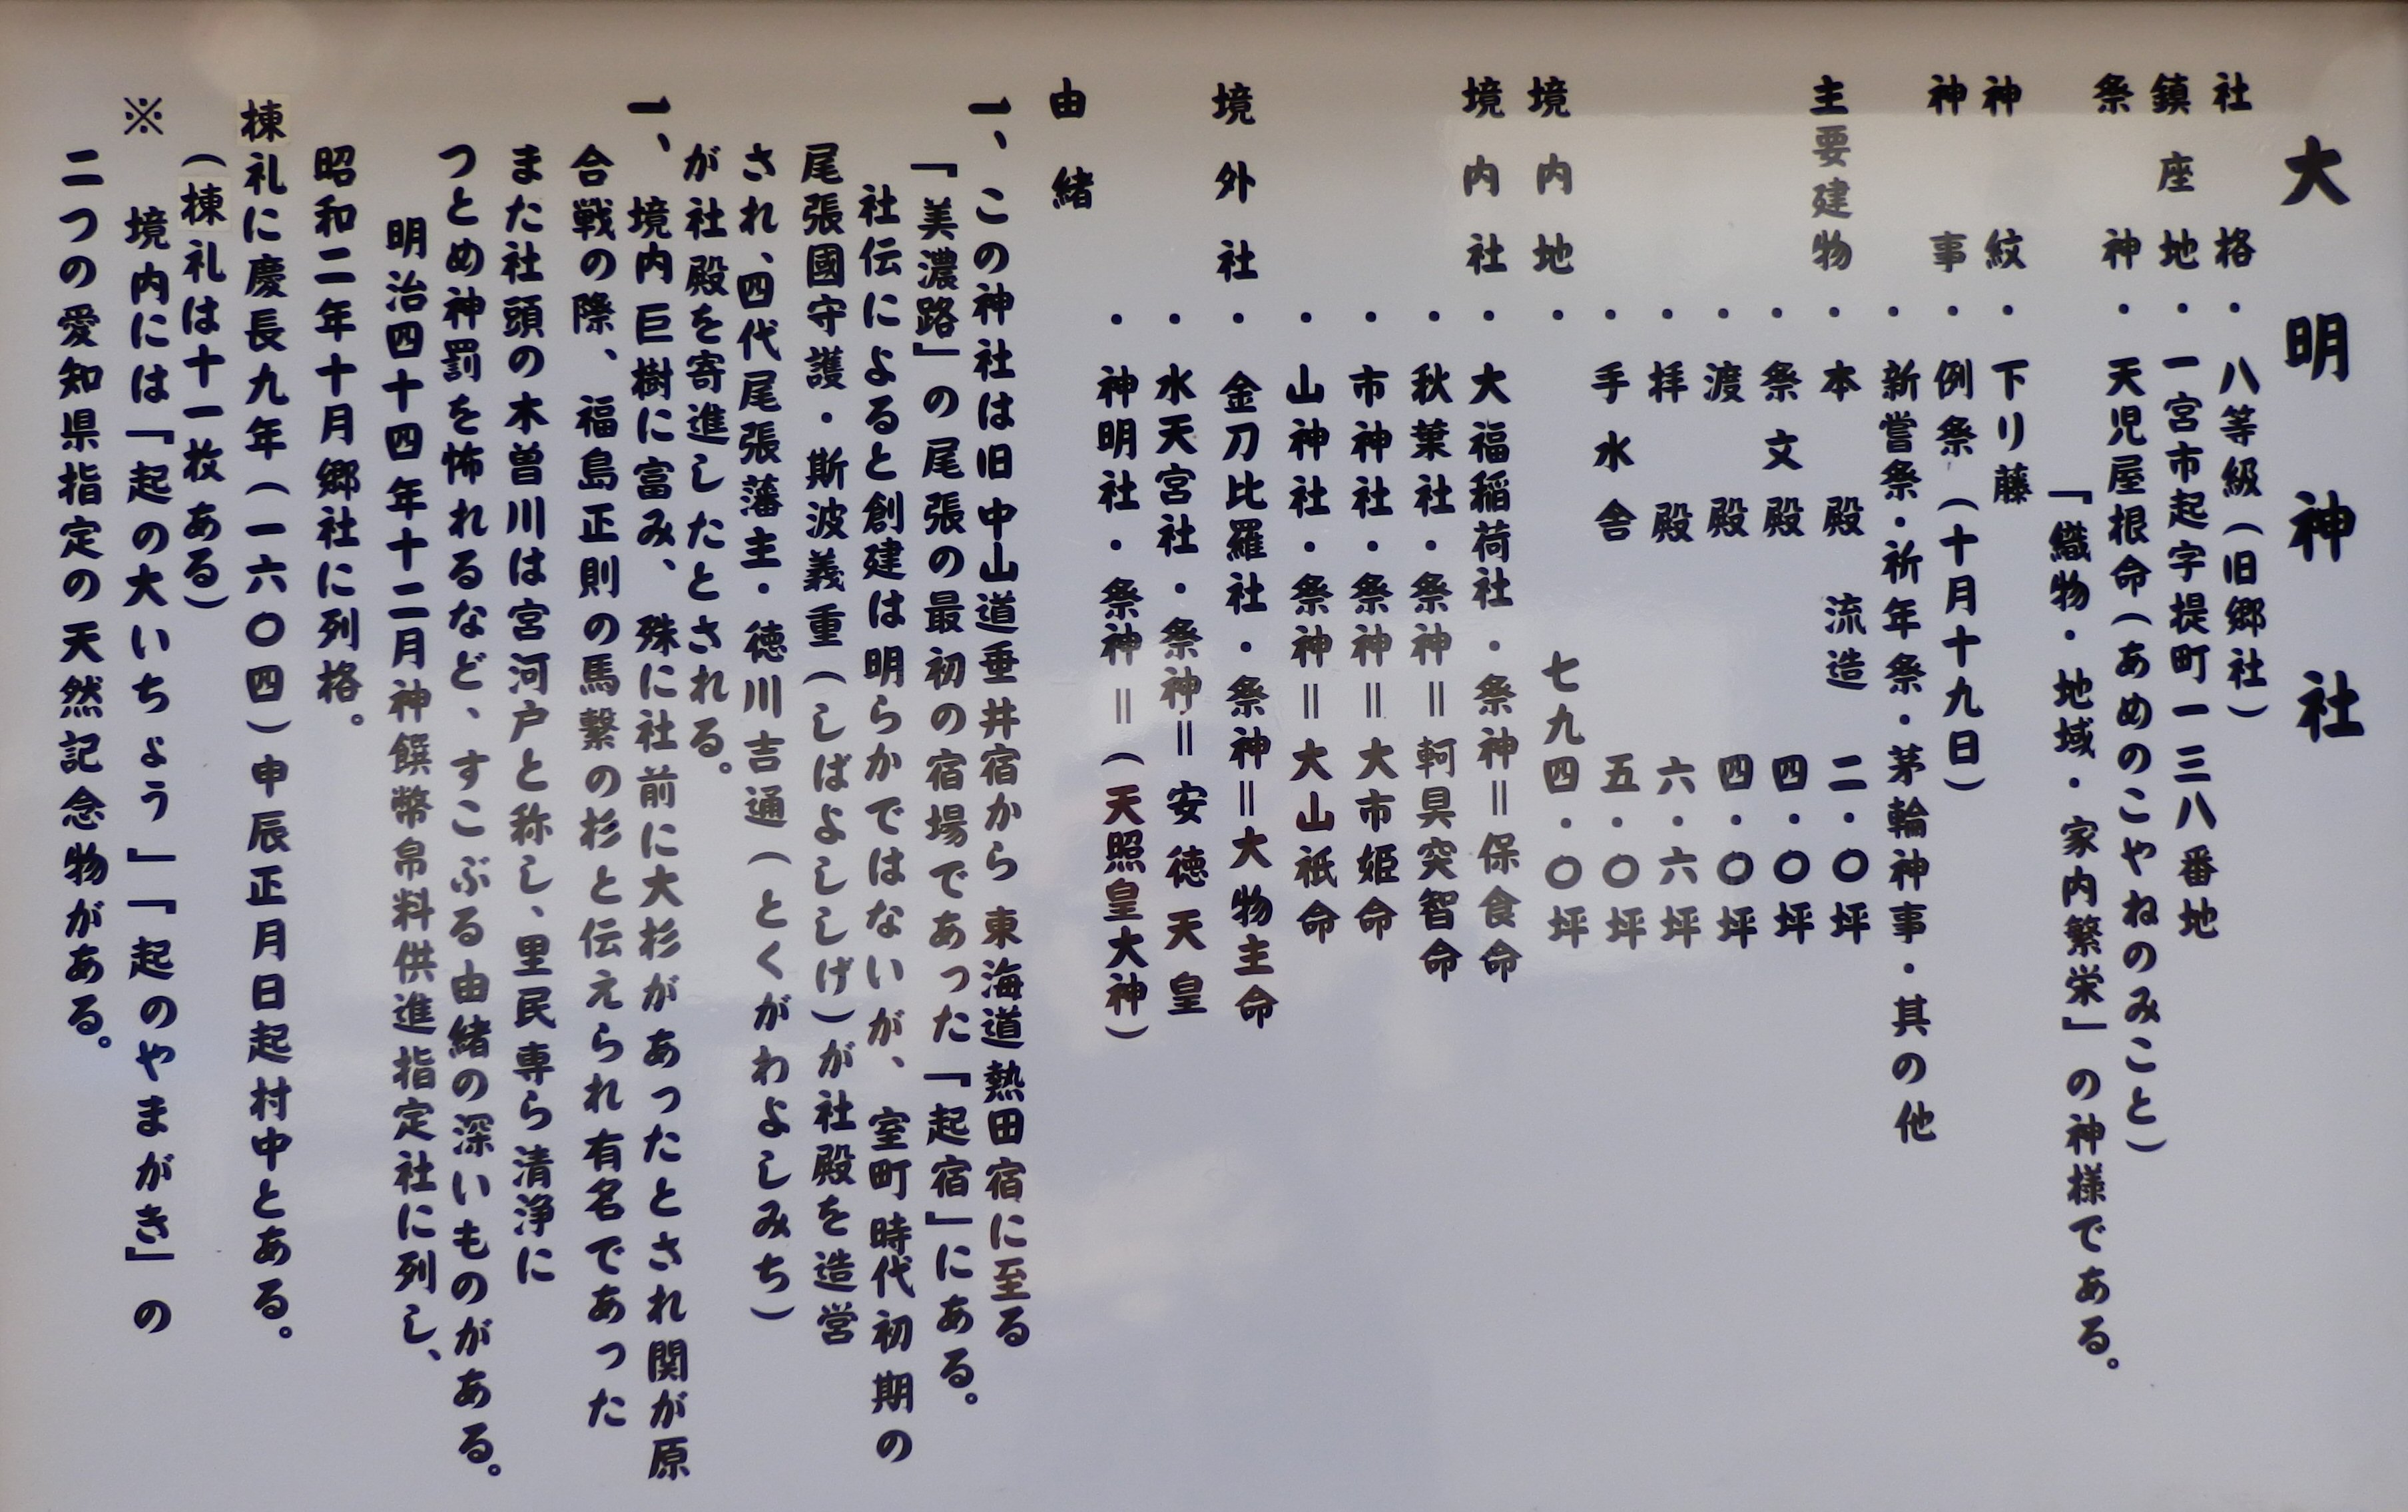 大明神社
社格・八等級（旧郷社）
鎮座地・一宮市起字堤町一三八番地
祭神・天児屋根命（あめのこやねのみこと）
「織物・地域・家内繁栄」の神様である。
神紋・下り藤
神事・例祭（十月十九日）
・新嘗祭・祈年祭・茅輪神事・其の他
主要建物・本殿 流造 二・〇坪
・祭文殿 四・〇坪
・渡殿 四・〇坪
・拝殿 六・六坪
・手水舎 五・〇坪
境内地・七九四・〇坪
境内社・大福稲荷社・祭神＝保食命
・秋葉社・祭神＝軻具突智命
・市神社・祭神＝大市姫命
・山神社・祭神＝大山祇命
境外社・金刀比羅社・祭神＝大物主命
・水天宮社・祭神＝安徳天皇
・神明社・祭神＝（天照皇大神）
由緒
一、この神社は旧中山道垂井宿から東海道熱田宿に至る
「美濃路」の尾張の最初の宿場であった「起宿」にある。
社伝によると創建は明らかではないが、室町時代初期の
尾張國守護・斯波義重（しばよししげ）が社殿を造営
され、四代尾張藩主・徳川吉通（とくがわよしみち）
が社殿を寄進したとされる。
一、境内巨樹に富み、殊に社前に大杉があったとされ関が原
合戦の際、福島正則の馬繋の杉と伝えられ有名であった
また社頭の木曽川は宮河戸と称し、里民専ら清浄に
つとめ神罰を怖れるなど、すこぶる由緒の深いものがある。
明治四十四年十二月神饌幣帛料供進指定社に列し、
昭和二年十月郷社に列格。
棟礼に慶長九年（一六〇四）申辰正月日起村中とある。
（棟礼は十一枚ある）
※ 境内には「起の大いちょう」「起のやまがき」の
二つの愛知県指定の天然記念物がある。